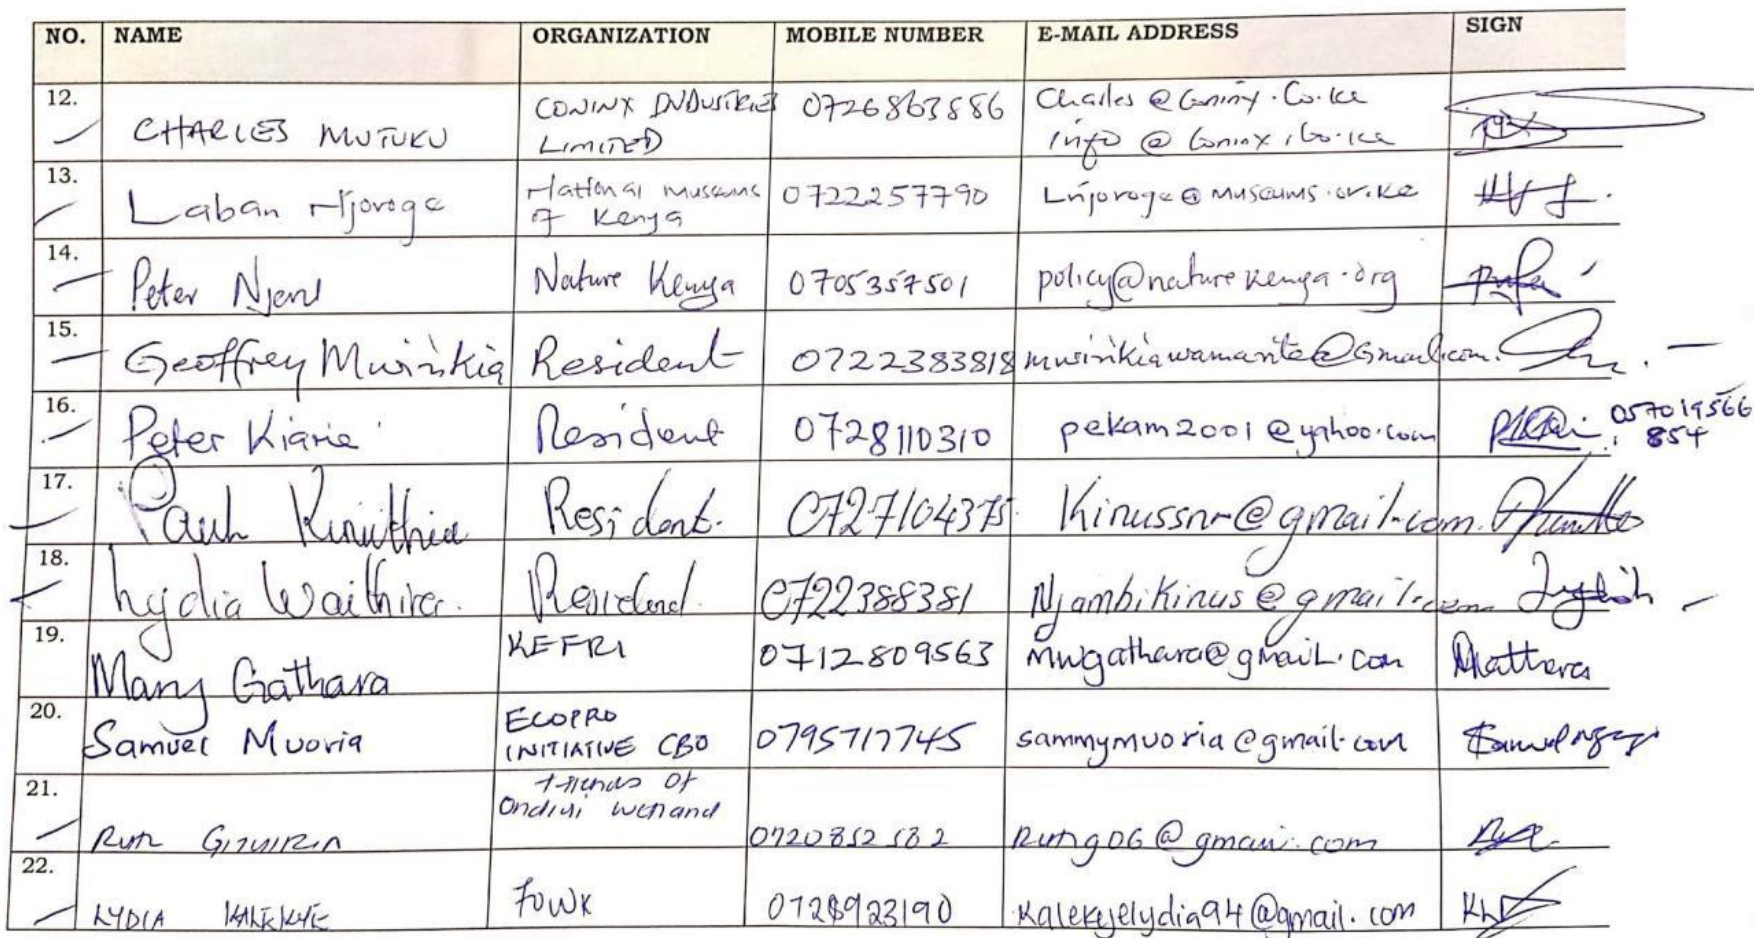 NO. NAME ORGANIZATION MOBILE NUMBER E-MAIL ADDRESS SIGN
12. CHARLES MUTUKU CONINX INDUSTRIES LIMITED 0726863886 Charles@Coninx.Co.ke info@Coninx.Co.ke
13. Laban Njoroge National museums of Kenya 0722257790 Lnjoroge@museums.or.ke
14. Peter Nature Kenya 0705357501 policy@naturekenya.org
15. Geoffrey Mwirikia Resident 0722383818 mwirikiawamarite@Gmail.com.
16. Peter Kiarie Resident 0728110310 pekam2001@yahoo.com 057019566 854
17. Kinuthia Resident. 0727104375 Kinussnr@gmail.com.
18. Lydia Waithira. Resident. 0722388381 Njambikinus@gmail.com
19. Mary Gathara KEFRI 0712809563 mwgathara@gmail.com
20. Samuel Muoria ECOPRO INITIATIVE CBO 0795717745 sammymuoria@gmail.com
21. Friends Of Ondiri wetland 0720852582
22. LYDIA KALEKYE FOWK 0728923190 kalekyelydia94@gmail.com